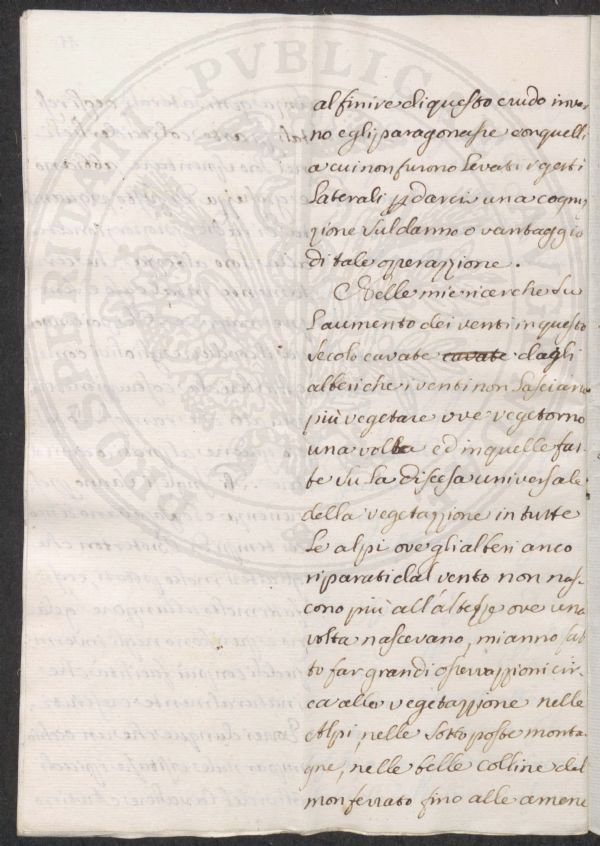 al finire di questo crudo inver
no e gli paragonasse con quelli
a cui non furono levati i getti
laterali p darci una cogni
zione sul danno o vantaggio
di tale operazzione.
Nelle mie ricerche su
l'aumento dei venti in questo
secolo cavate cavate dagli
alberi che i venti non lasciano
più vegetare ove vegetorno
una volta ed in quelle fat
te su la discesa universale
della vegetazzione in tutte
le alpi ove gli alberi anco
riparati dal vento non nas
cono più all'altezze ove una
volta nascevano, mi anno fat
to far grandi osservazzioni cir
ca alla vegetazzione nelle
Alpi, nelle sotto poste monta
gne, nelle belle colline del
monferrato fino alle amene